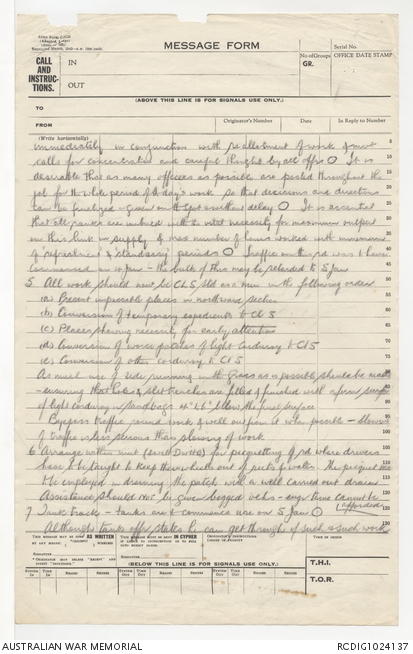 MESSAGE FORM
Serial No.
CALL
AND
INSTRUC-
TIONS.
IN
OUT
No. of Groups
GR.
OFFICE DATE STAMP
(ABOVE THIS LINE IS FOR SIGNALS USE ONLY.)
TO
FROM
Originator's Number
Date
In Reply to Number
(Write horizontally)
immediately in conjunction with reallotment of work &
calls for concentrated and careful thought by all offrs O It is
desirable that as many officers as possible are posted throughout the
job for the whole period of the day's work so that decisions and directions
can be finalized & given on the spot without delay O It is essential
that all ranks are imbued with the vital necessity for maximum output
on this link in supply & max number of hours worked with minimum
of "refreshment & standeasy" periods O Traffic on the rd was to have
commenced on Jan - the bulk of this may be retarded to 5 Jan
5 All work should now be CL5 std as a min in the following order
(a) Present impassible places in northward section
(b) Conversion of temporary expedients to CL 5
(c) Places showing necessity for early attention
(d) Conversion of worse patches of light corduroy to CL5
(e) Conversion of other corduroy to CL5
As much use of side running on the grass as is possible should be made
- ensuring that holes & slit trenches are filled & finished with a firm
of light corduroy or sandbags 4" to 6" below the final surface
Bypass traffic round work & well out from it when possible - slowing
of traffic is less serious than slowing of work
6 Arrange within unit for picquetting of rd where drivers
have to be taught to keep their wheels out of water. The picquet
be employed in draining the patch with a well carried out drain
Assistance should not be given bogged vehs - engr time cannot be
afforded
7 Tank tracks - tanks are to commence use on 5 Jan O
Although tanks offr states he can get through if such & such work
THIS MESSAGE MAY BE SENT AS WRITTEN
IN CYPHER
(BELOW THIS LINE IS FOR SIGNALS USE ONLY.)
T.H.I.
T.O.R.
AUSTRALIAN WAR MEMORIAL
RCDIG1024137